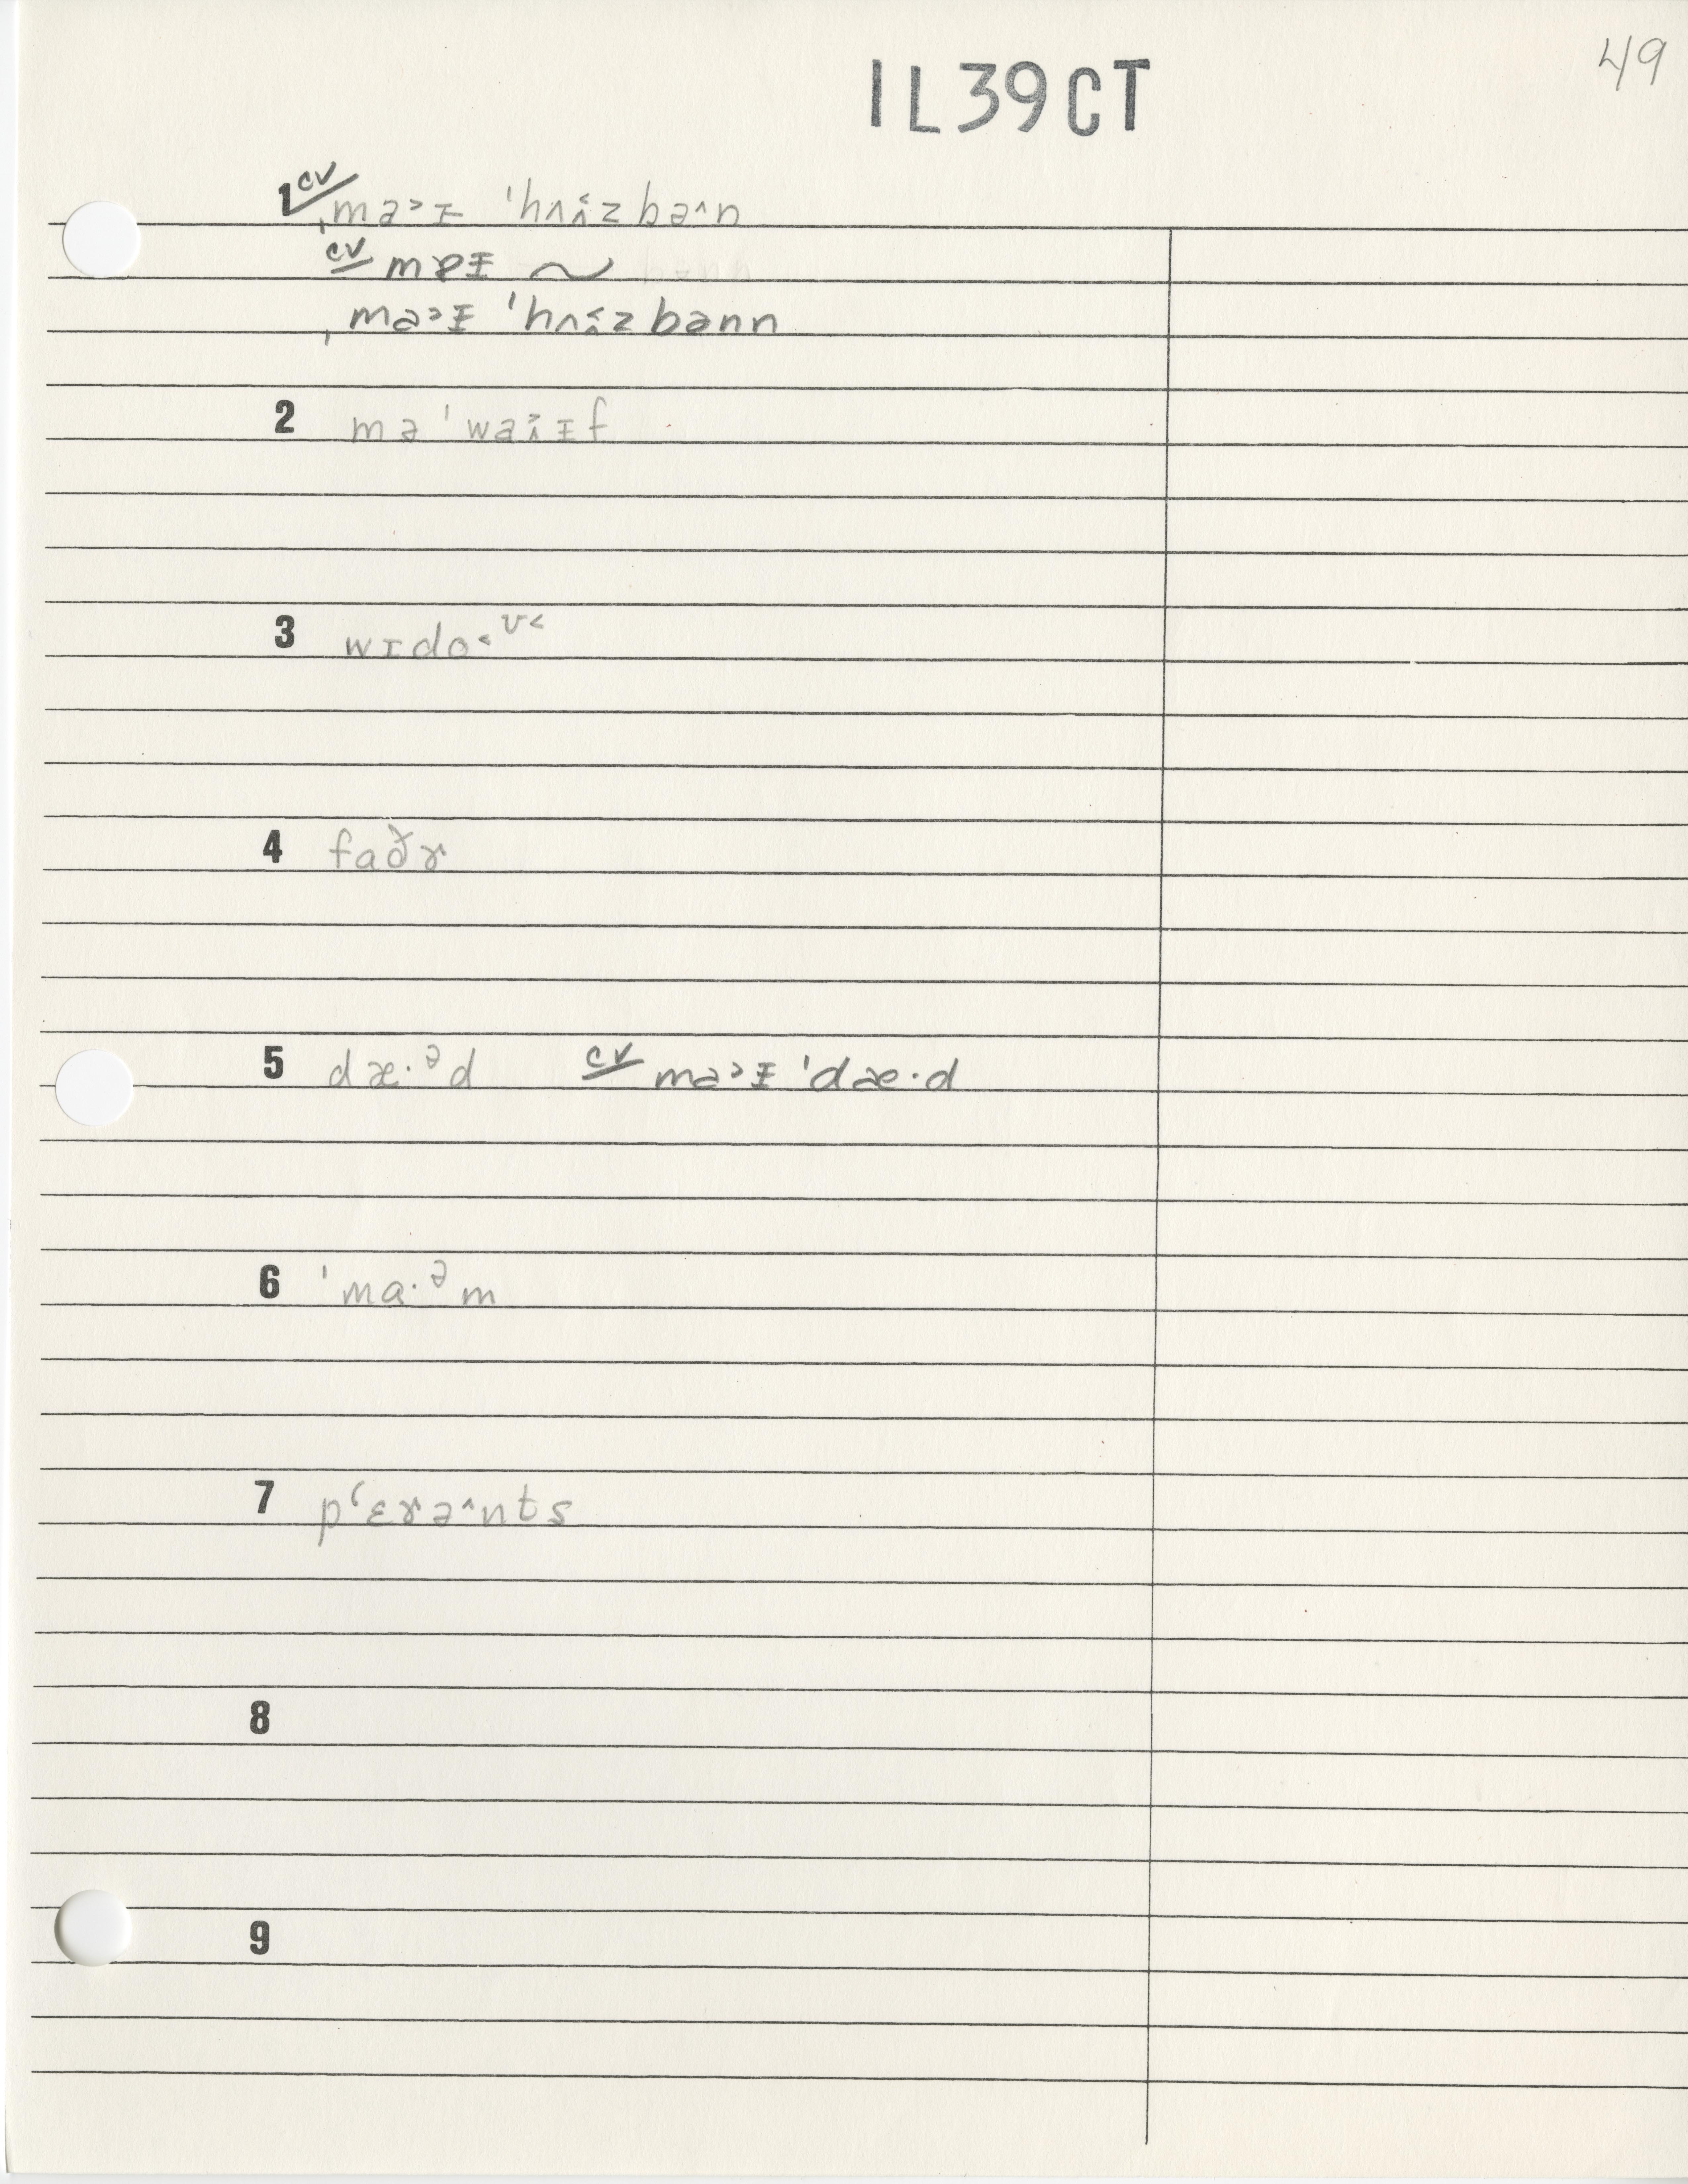 49
1L39CT
1 cv ˌma˃ɪ ˈhʌʌ̭̆zbə˄n
cv mɐɪ ~
ˌma˃ɪ ˈhʌʌ̭̆zbənn
2 mə ˈwaɪf
3 wɪdo˂ʊ˂
4 faðɚ
5 dæ·ᵊd cv ma˃ɪ ˈdæ·d
6 ˈmɑ·ᵊm
7 pʻɛrə˄nts
8
9